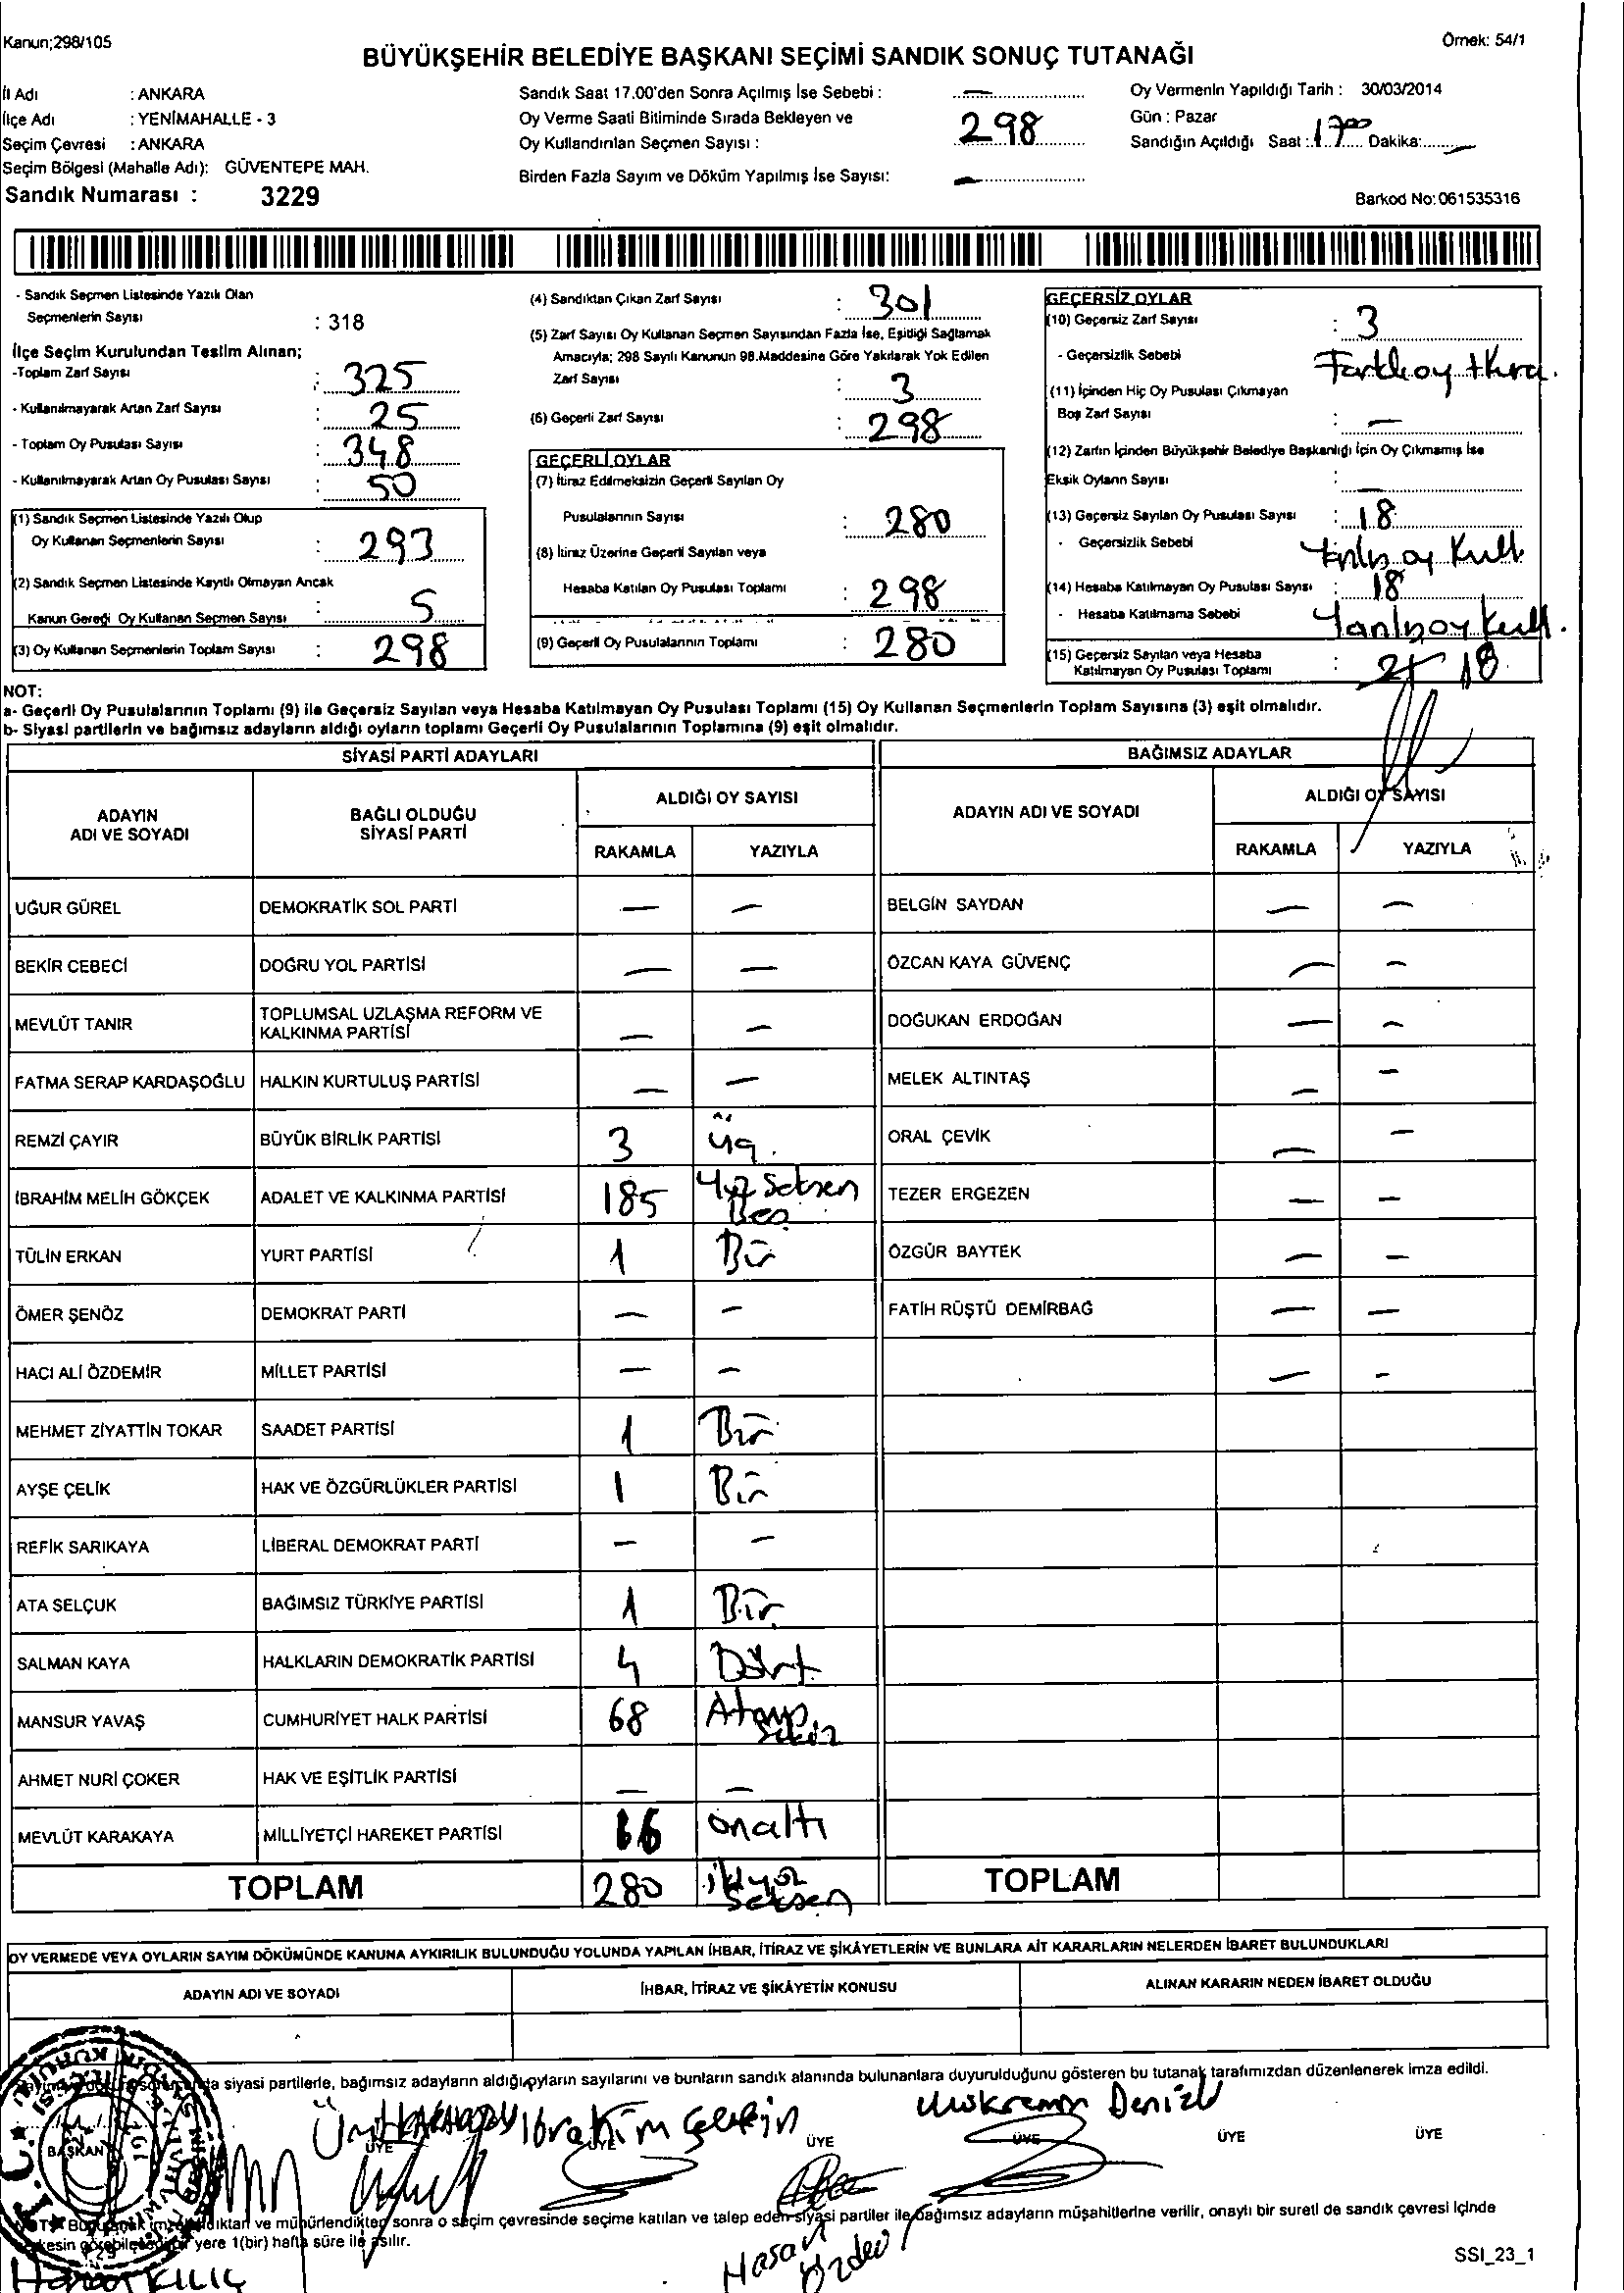 Kanun;298/105
Örnek: 54/1
BÜYÜKŞEHİR BELEDİYE BAŞKANI SEÇİMİ SANDIK SONUÇ TUTANAĞI
İl Adı : ANKARA
İlçe Adı : YENİMAHALLE - 3
Seçim Çevresi : ANKARA
Seçim Bölgesi (Mahalle Adı): GÜVENTEPE MAH.
Sandık Numarası : 3229
Sandık Saat 17.00'den Sonra Açılmış İse Sebebi : —
Oy Verme Saati Bitiminde Sırada Bekleyen ve
Oy Kullandırılan Seçmen Sayısı : 298
Birden Fazla Sayım ve Döküm Yapılmış İse Sayısı: —
Oy Vermenin Yapıldığı Tarih : 30/03/2014
Gün : Pazar
Sandığın Açıldığı Saat : 17 00 Dakika: —
Barkod No:061535316
- Sandık Seçmen Listesinde Yazılı Olan
Seçmenlerin Sayısı : 318
İlçe Seçim Kurulundan Teslim Alınan;
-Toplam Zarf Sayısı : 325
- Kullanılmayarak Artan Zarf Sayısı : 25
- Toplam Oy Pusulası Sayısı : 348
- Kullanılmayarak Artan Oy Pusulası Sayısı : 50
(1) Sandık Seçmen Listesinde Yazılı Olup
Oy Kullanan Seçmenlerin Sayısı : 293
(2) Sandık Seçmen Listesinde Kayıtlı Olmayan Ancak
Kanun Gereği Oy Kullanan Seçmen Sayısı : 5
(3) Oy Kullanan Seçmenlerin Toplam Sayısı : 298
(4) Sandıktan Çıkan Zarf Sayısı : 301
(5) Zarf Sayısı Oy Kullanan Seçmen Sayısından Fazla İse, Eşitliği Sağlamak
Amacıyla; 298 Sayılı Kanunun 98.Maddesine Göre Yakılarak Yok Edilen
Zarf Sayısı : 3
(6) Geçerli Zarf Sayısı : 298
GEÇERLİ OYLAR
(7) İtiraz Edilmeksizin Geçerli Sayılan Oy
Pusulalarının Sayısı : 280
(8) İtiraz Üzerine Geçerli Sayılan veya
Hesaba Katılan Oy Pusulası Toplamı : 298
(9) Geçerli Oy Pusulalarının Toplamı : 280
GEÇERSİZ OYLAR
(10) Geçersiz Zarf Sayısı : 3
- Geçersizlik Sebebi
(11) İçinden Hiç Oy Pusulası Çıkmayan
Boş Zarf Sayısı : —
(12) Zarfın İçinden Büyükşehir Belediye Başkanlığı İçin Oy Çıkmamış İse
Eksik Oyların Sayısı : —
(13) Geçersiz Sayılan Oy Pusulası Sayısı : 18
- Geçersizlik Sebebi Yanlış oy Kull.
(14) Hesaba Katılmayan Oy Pusulası Sayısı : 18
- Hesaba Katılmama Sebebi Yanlış oy Kull.
(15) Geçersiz Sayılan veya Hesaba
Katılmayan Oy Pusulası Toplamı : 18
NOT:
a- Geçerli Oy Pusulalarının Toplamı (9) ile Geçersiz Sayılan veya Hesaba Katılmayan Oy Pusulası Toplamı (15) Oy Kullanan Seçmenlerin Toplam Sayısına (3) eşit olmalıdır.
b- Siyasi partilerin ve bağımsız adayların aldığı oyların toplamı Geçerli Oy Pusulalarının Toplamına (9) eşit olmalıdır.
SİYASİ PARTİ ADAYLARI
ADAYIN ADI VE SOYADI
BAĞLI OLDUĞU SİYASİ PARTİ
ALDIĞI OY SAYISI
RAKAMLA YAZIYLA
UĞUR GÜREL DEMOKRATİK SOL PARTİ — —
BEKİR CEBECİ DOĞRU YOL PARTİSİ — —
MEVLÜT TANIR TOPLUMSAL UZLAŞMA REFORM VE KALKINMA PARTİSİ — —
FATMA SERAP KARDAŞOĞLU HALKIN KURTULUŞ PARTİSİ — —
REMZİ ÇAYIR BÜYÜK BİRLİK PARTİSİ 3 üç
İBRAHİM MELİH GÖKÇEK ADALET VE KALKINMA PARTİSİ 185 Yüz Seksen Beş
TÜLİN ERKAN YURT PARTİSİ 1 Bir
ÖMER ŞENÖZ DEMOKRAT PARTİ — —
HACI ALİ ÖZDEMİR MİLLET PARTİSİ — —
MEHMET ZİYATTİN TOKAR SAADET PARTİSİ 1 Bir
AYŞE ÇELİK HAK VE ÖZGÜRLÜKLER PARTİSİ 1 Bir
REFİK SARIKAYA LİBERAL DEMOKRAT PARTİ — —
ATA SELÇUK BAĞIMSIZ TÜRKİYE PARTİSİ 1 Bir
SALMAN KAYA HALKLARIN DEMOKRATİK PARTİSİ 4 Dört
MANSUR YAVAŞ CUMHURİYET HALK PARTİSİ 68 Atmış Sekiz
AHMET NURİ ÇOKER HAK VE EŞİTLİK PARTİSİ — —
MEVLÜT KARAKAYA MİLLİYETÇİ HAREKET PARTİSİ 16 onaltı
TOPLAM 280 ikiyüz Seksen
BAĞIMSIZ ADAYLAR
ADAYIN ADI VE SOYADI
ALDIĞI OY SAYISI
RAKAMLA YAZIYLA
BELGİN SAYDAN — —
ÖZCAN KAYA GÜVENÇ — —
DOĞUKAN ERDOĞAN — —
MELEK ALTINTAŞ — —
ORAL ÇEVİK — —
TEZER ERGEZEN — —
ÖZGÜR BAYTEK — —
FATİH RÜŞTÜ DEMİRBAĞ — —
— —
TOPLAM
OY VERMEDE VEYA OYLARIN SAYIM DÖKÜMÜNDE KANUNA AYKIRILIK BULUNDUĞU YOLUNDA YAPILAN İHBAR, İTİRAZ VE ŞİKÂYETLERİN VE BUNLARA AİT KARARLARIN NELERDEN İBARET BULUNDUKLARI
ADAYIN ADI VE SOYADI
İHBAR, İTİRAZ VE ŞİKÂYETİN KONUSU
ALINAN KARARIN NEDEN İBARET OLDUĞU
siyasi partilerle, bağımsız adayların aldığı oyların sayılarını ve bunların sandık alanında bulunanlara duyurulduğunu gösteren bu tutanak tarafımızdan düzenlenerek imza edildi.
Ümit İbrahim Çelikin Mükremin Denizli
BAŞKAN ÜYE ÜYE ÜYE ÜYE ÜYE ÜYE
ve mühürlendikten sonra o seçim çevresinde seçime katılan ve talep eden siyasi partiler ile bağımsız adayların müşahitlerine verilir, onaylı bir sureti de sandık çevresi içinde
yere 1(bir) hafta süre ile asılır.
Hasan
KILIÇ
SSI_23_1